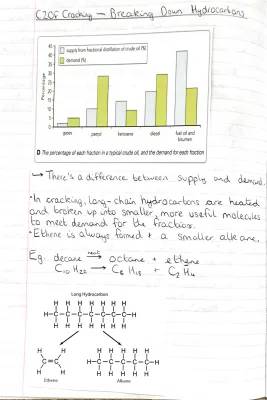 C20f Cracking - Breaking Down Hydrocarbons
supply from fractional distillation of crude oil (%)
demand (%)
Percentage
45
40
35
30
25
20
15
10
5
0
gases petrol kerosene diesel fuel oil and bitumen
D The percentage of each fraction in a typical crude oil, and the demand for each fraction
There's a difference between supply and demand.
• In cracking, long-chain hydrocarbons are heated
and broken up into smaller, more useful molecules
to meet demand for the fractions.
• Ethene is always formed + a smaller alkane.
Eg. decane heat→ octane + ethene
C10 H22 → C8 H18 + C2 H4
Long Hydrocarbon
H H H H H H H
H-C-C-C-C-C-C-C-H
H H H H H H H
H H
C=C
H H
Ethene
H H H H H
H-C-C-C-C-C-H
H H H H H
Alkane